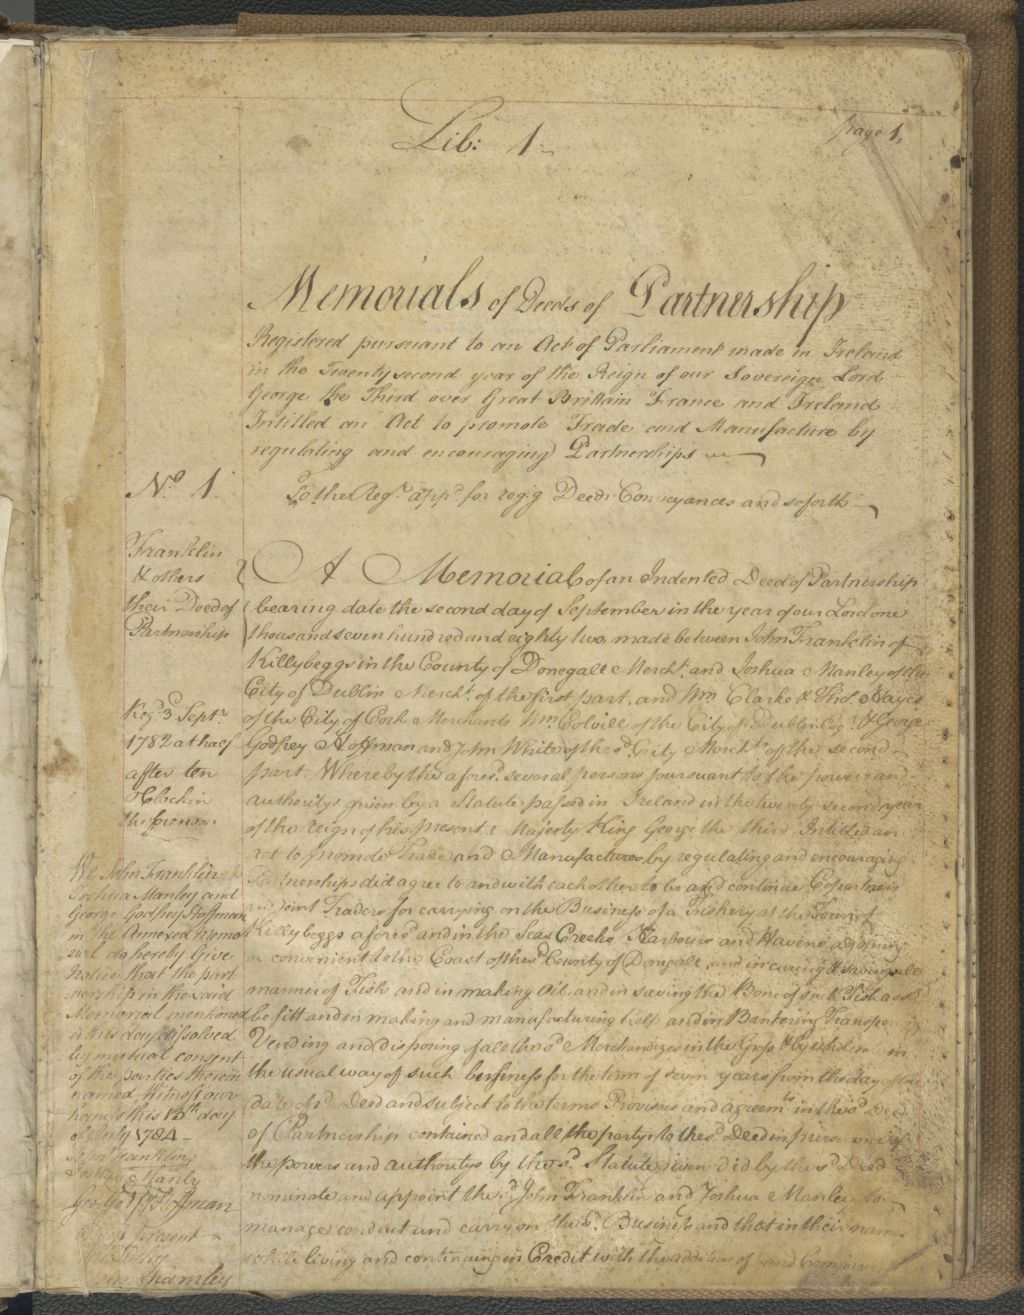 Lib: 1
Page 1,
Memorials of Deeds of Partnership
Registered pursuant to an Act of Parliament made in Ireland
in the Twenty second year of the Reign of our Sovereign Lord
George the Third over Great Brittain France and Ireland
Intitled an Act to promote Trade and Manufacture by
regulating and encouraging Partnerships
No. 1
To the Regr. appd. for regg Deeds Conveyances and soforth
Franklin
& others
their Deed of
Partnership
Regd. 3 Septr.
1782 at half
after ten
OClock in
A Memorial of an Indented Deed of Partnership
bearing date the second day of September in the year of our Lord one
thousand seven hundred and eighty two, made between John Franklin of
Killybeggs in the County of Donegall Mercht. and Joshua Manley of the
City of Dublin Mercht. of the first part, and Wm. Clarke & Thos. Hayes
of the City of Cork Merchants Wm. Colvill of the City of Dublin Esqr. & George
Godfrey Hoffman and John White of the sd. City Merchts. of the second
part, Whereby the aforesd. several persons pursuant to the power and
authoritys given by a Statute passed in Ireland in the twenty second year
of the reign of his present Majesty King George the third Intitled an
Act to promote Trade and Manufactures by regulating and encouraging
Partnerships did agree to and with each other to be and continue Copartners
and joint Traders for carrying on the Business of a Fishery at the Town of
Killybeggs aforesd. and in the Seas Creeks Harbours and Havens adjoining
or convenient to the Coast of the sd. County of Donegall, and in curing & saving all
manner of Fish and in making Oil, and in saving the Bone of such Fish as shd.
be fitt and in making and manufacturing Kelp and in Bartering
Vending and disposing of all the sd. Merchandizes in the Gross & by in
the usual way of such business for the term of seven years from the day of the
date of sd. Deed and subject to the terms Provisoes and agreemts. in the sd. Deed
of Partnership contained and all the partys to the sd. Deed in pursuance of
the powers and authoritys by the sd. Statute given did by the sd. Deed
nominate and appoint the sd. John Franklin and Joshua Manley to
manage conduct and carry on the sd. Business and that in their names
while living and continuing in Credit with the addition of and Company
We John Franklin
Joshua Manley and
George Godfrey Hoffman
in the Annexed Memo
rial do hereby Give
notice that the part
nership in the said
Memorial mentioned
is this day dissolved
by mutual consent
of the parties therein
named Witness our
hands this 13th day
of July 1784
John Franklin
Joshua Manly
Geo. Godf. Hoffman
present